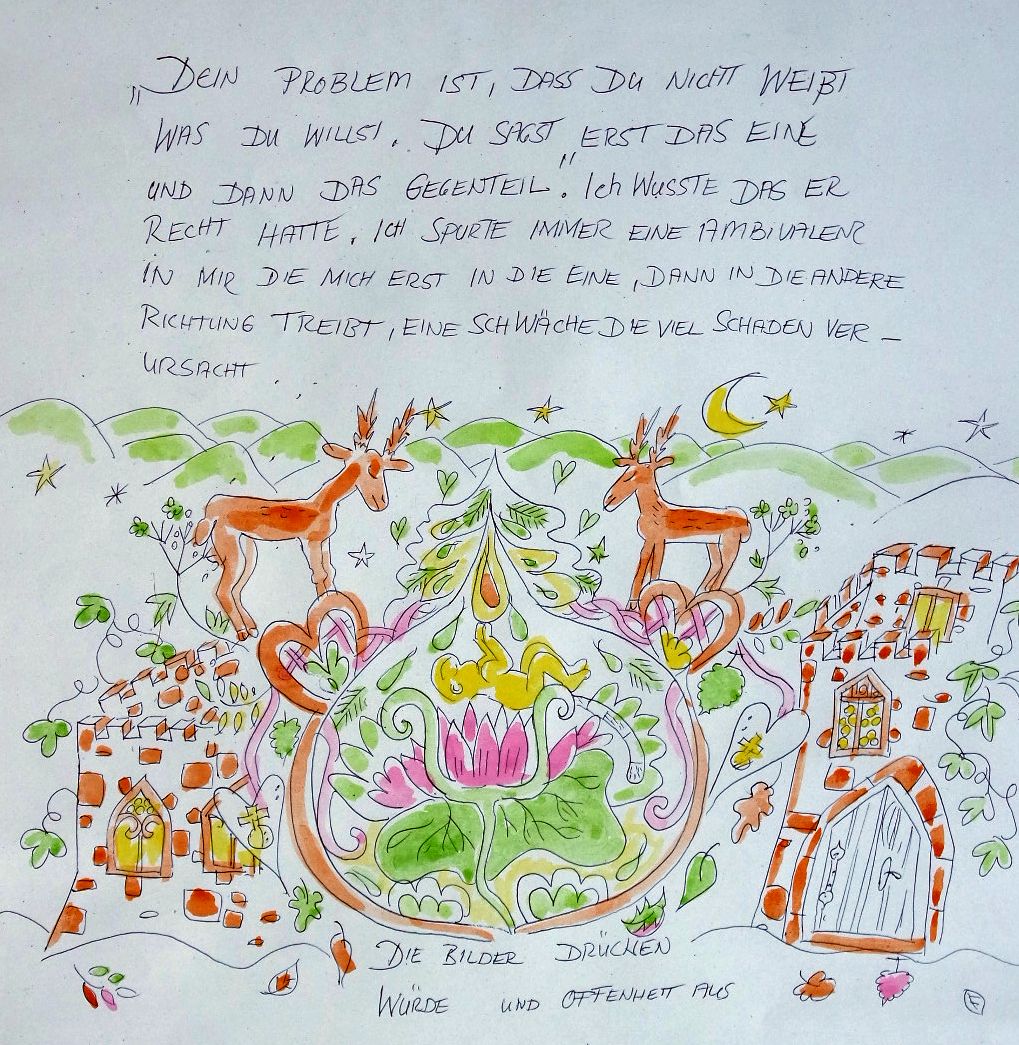 „DEIN PROBLEM IST, DASS DU NICHT WEIßT
WAS DU WILLST. DU SAGST „ERST DAS EINE
UND DANN DAS GEGENTEIL". ICH WUSSTE DAS ER
RECHT HATTE. ICH SPURTE IMMER EINE AMBIVALENZ
IN MIR DIE MICH ERST IN DIE EINE, DANN IN DIE ANDERE
RICHTUNG TREIBT, EINE SCHWÄCHE DIE VIEL SCHADEN VER-
URSACHT.
DIE BILDER DRÜCKEN
WÜRDE UND OFFENHEIT AUS